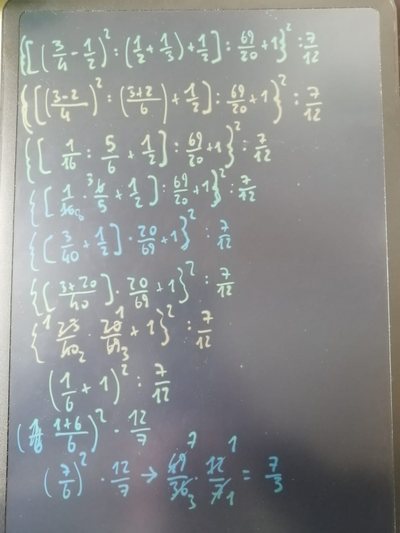 {[(3/4 - 1/2)² : (1/2 + 1/3) + 1/2] : 69/20 + 1}² : 7/12
{[((3-2)/4)² : ((3+2)/6) + 1/2] : 69/20 + 1}² : 7/12
{[1/16 : 5/6 + 1/2] : 69/20 + 1}² : 7/12
{[1/16 8 · 3 6/5 + 1/2] : 69/20 + 1}² : 7/12
{[3/40 + 1/2] · 20/69 + 1}² : 7/12
{[(3+20)/40] · 20/69 + 1}² : 7/12
{1 23/40 2 · 20 1/69 3 + 1}² : 7/12
(1/6 + 1)² : 7/12
((1+6)/6)² · 12/7
(7/6)² · 12/7 → 49 7/36 3 · 12 1/7 1 = 7/3